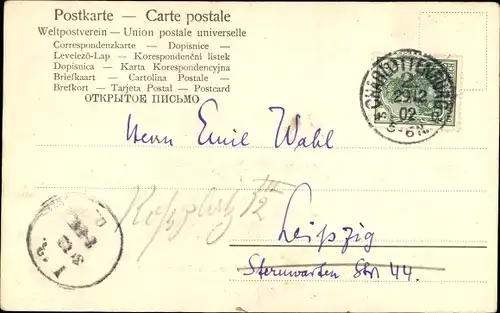 Postkarte — Carte postale
Weltpostverein — Union postale universelle
Correspondenzkarte — Dopisnice —
Levelező-Lap — Korespondenční listek
Dopisnica — Karta Korespondencyjna
Briefkaart — Cartolina Postale —
Brefkort — Tarjeta Postal — Postcard
ОТКРЫТОЕ ПИСЬМО
CHARLOTTENBURG
2
23 12
02
5-6N.
Herrn Emil Wahl
III
Leipzig
Sternwarten Str 44.